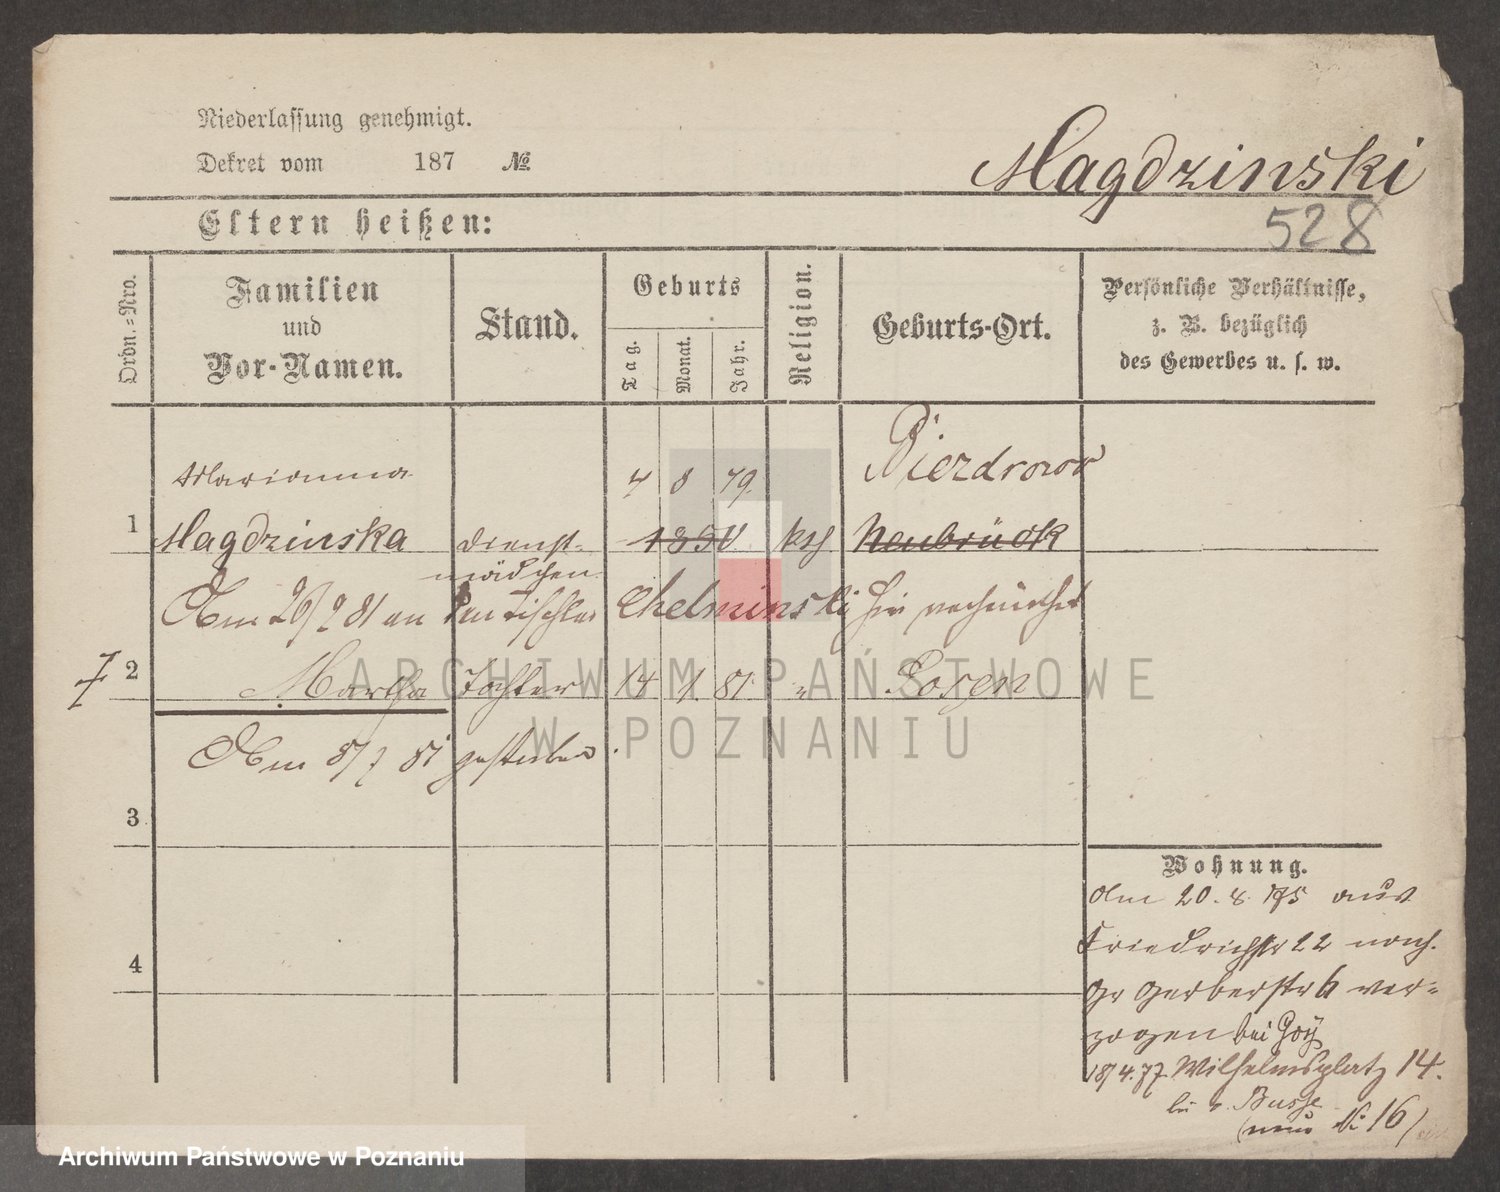 Niederlassung genehmigt.
Dekret vom 187 №
Magdzinski
Eltern heißen:
528
Ordn.=Nro.
Familien
und
Vor-Namen.
Stand.
Geburts
Tag.
Monat.
Jahr.
Religion.
Geburts-Ort.
Persönliche Verhältnisse,
z. B. bezüglich
des Gewerbes u. s. w.
Marianna
8 79.
Bierdrowo
1
Magdzinska
Dienst-
1850
kth
Neubrück
mädchen
Am 26/2 81 an den Tischler Chelminski hier verheirathet
2
Martha Tochter 14 1 81 " Posen
Am 8/7 81 gestorben.
3
Wohnung.
Am 20. 8. 75 aus
Friedrichstr 22 nach
Gr Gerberstr 6 ver-
zogen bei Goÿ
4
18/4. 77 Wilhelmsplatz 14.
bei v. Busse
(neue № 16)
ARCHIWUM PAŃSTWOWE
W POZNANIU
Archiwum Państwowe w Poznaniu